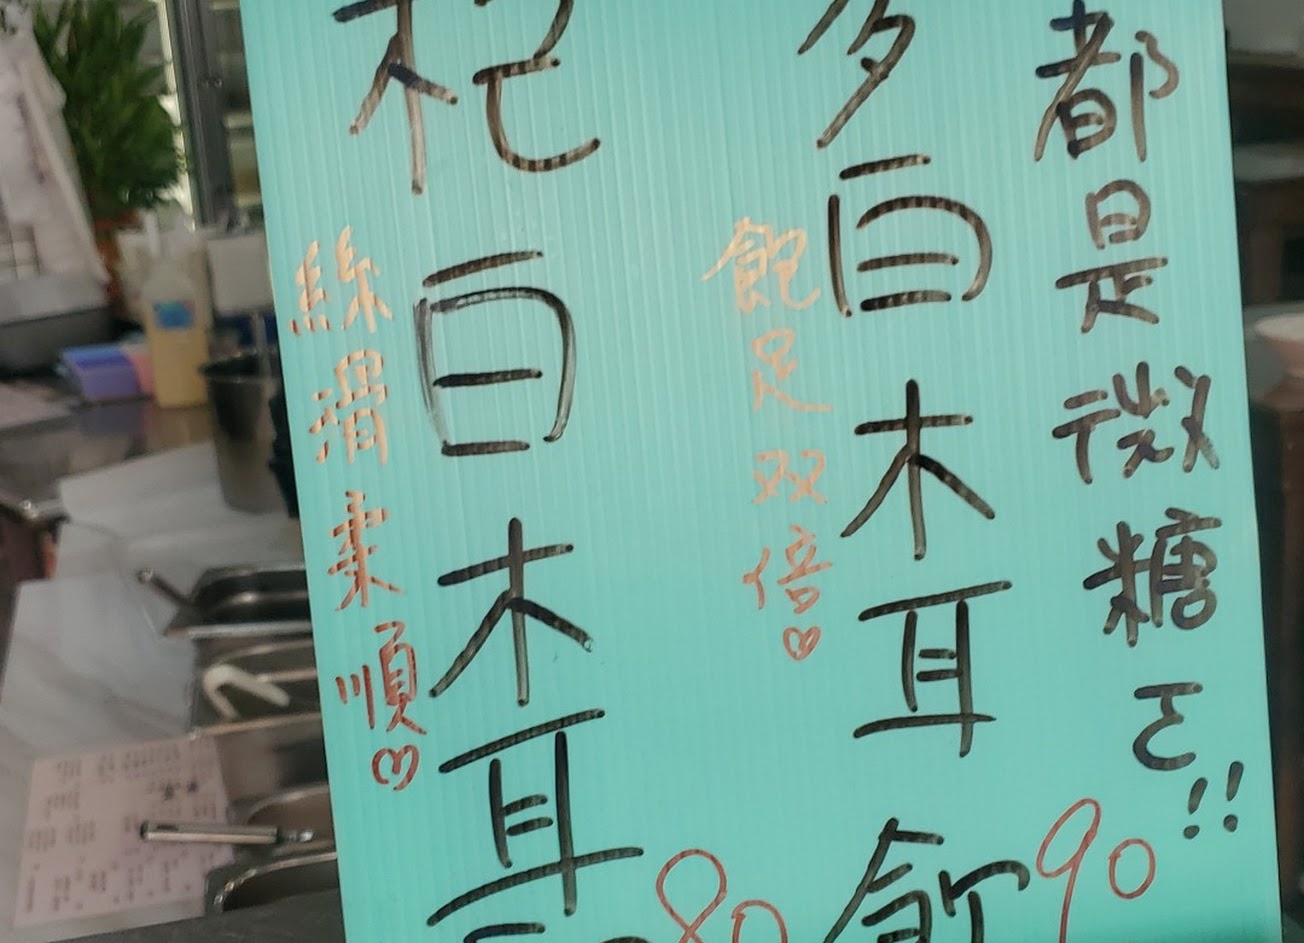 都是微糖ㄛ!!
多白木耳飲
90
飽足双倍♡
杞白木耳
80
絲滑柔順♡